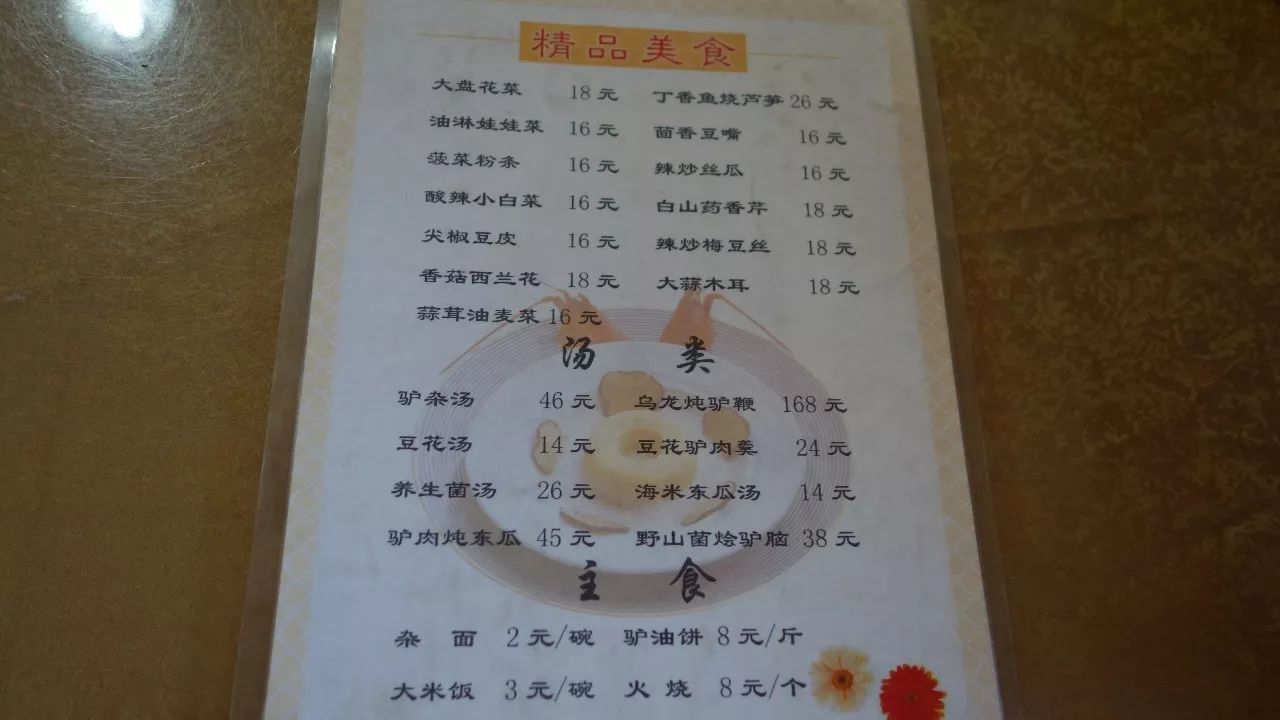 精品美食
大盘花菜 18元 丁香鱼烧芦笋 26元
油淋娃娃菜 16元 茴香豆嘴 16元
菠菜粉条 16元 辣炒丝瓜 16元
酸辣小白菜 16元 白山药香芹 18元
尖椒豆皮 16元 辣炒梅豆丝 18元
香菇西兰花 18元 大蒜木耳 18元
蒜茸油麦菜 16元
汤类
驴杂汤 46元 乌龙炖驴鞭 168元
豆花汤 14元 豆花驴肉羹 24元
养生菌汤 26元 海米东瓜汤 14元
驴肉炖东瓜 45元 野山菌烩驴脑 38元
主食
杂面 2元/碗 驴油饼 8元/斤
大米饭 3元/碗 火烧 8元/个